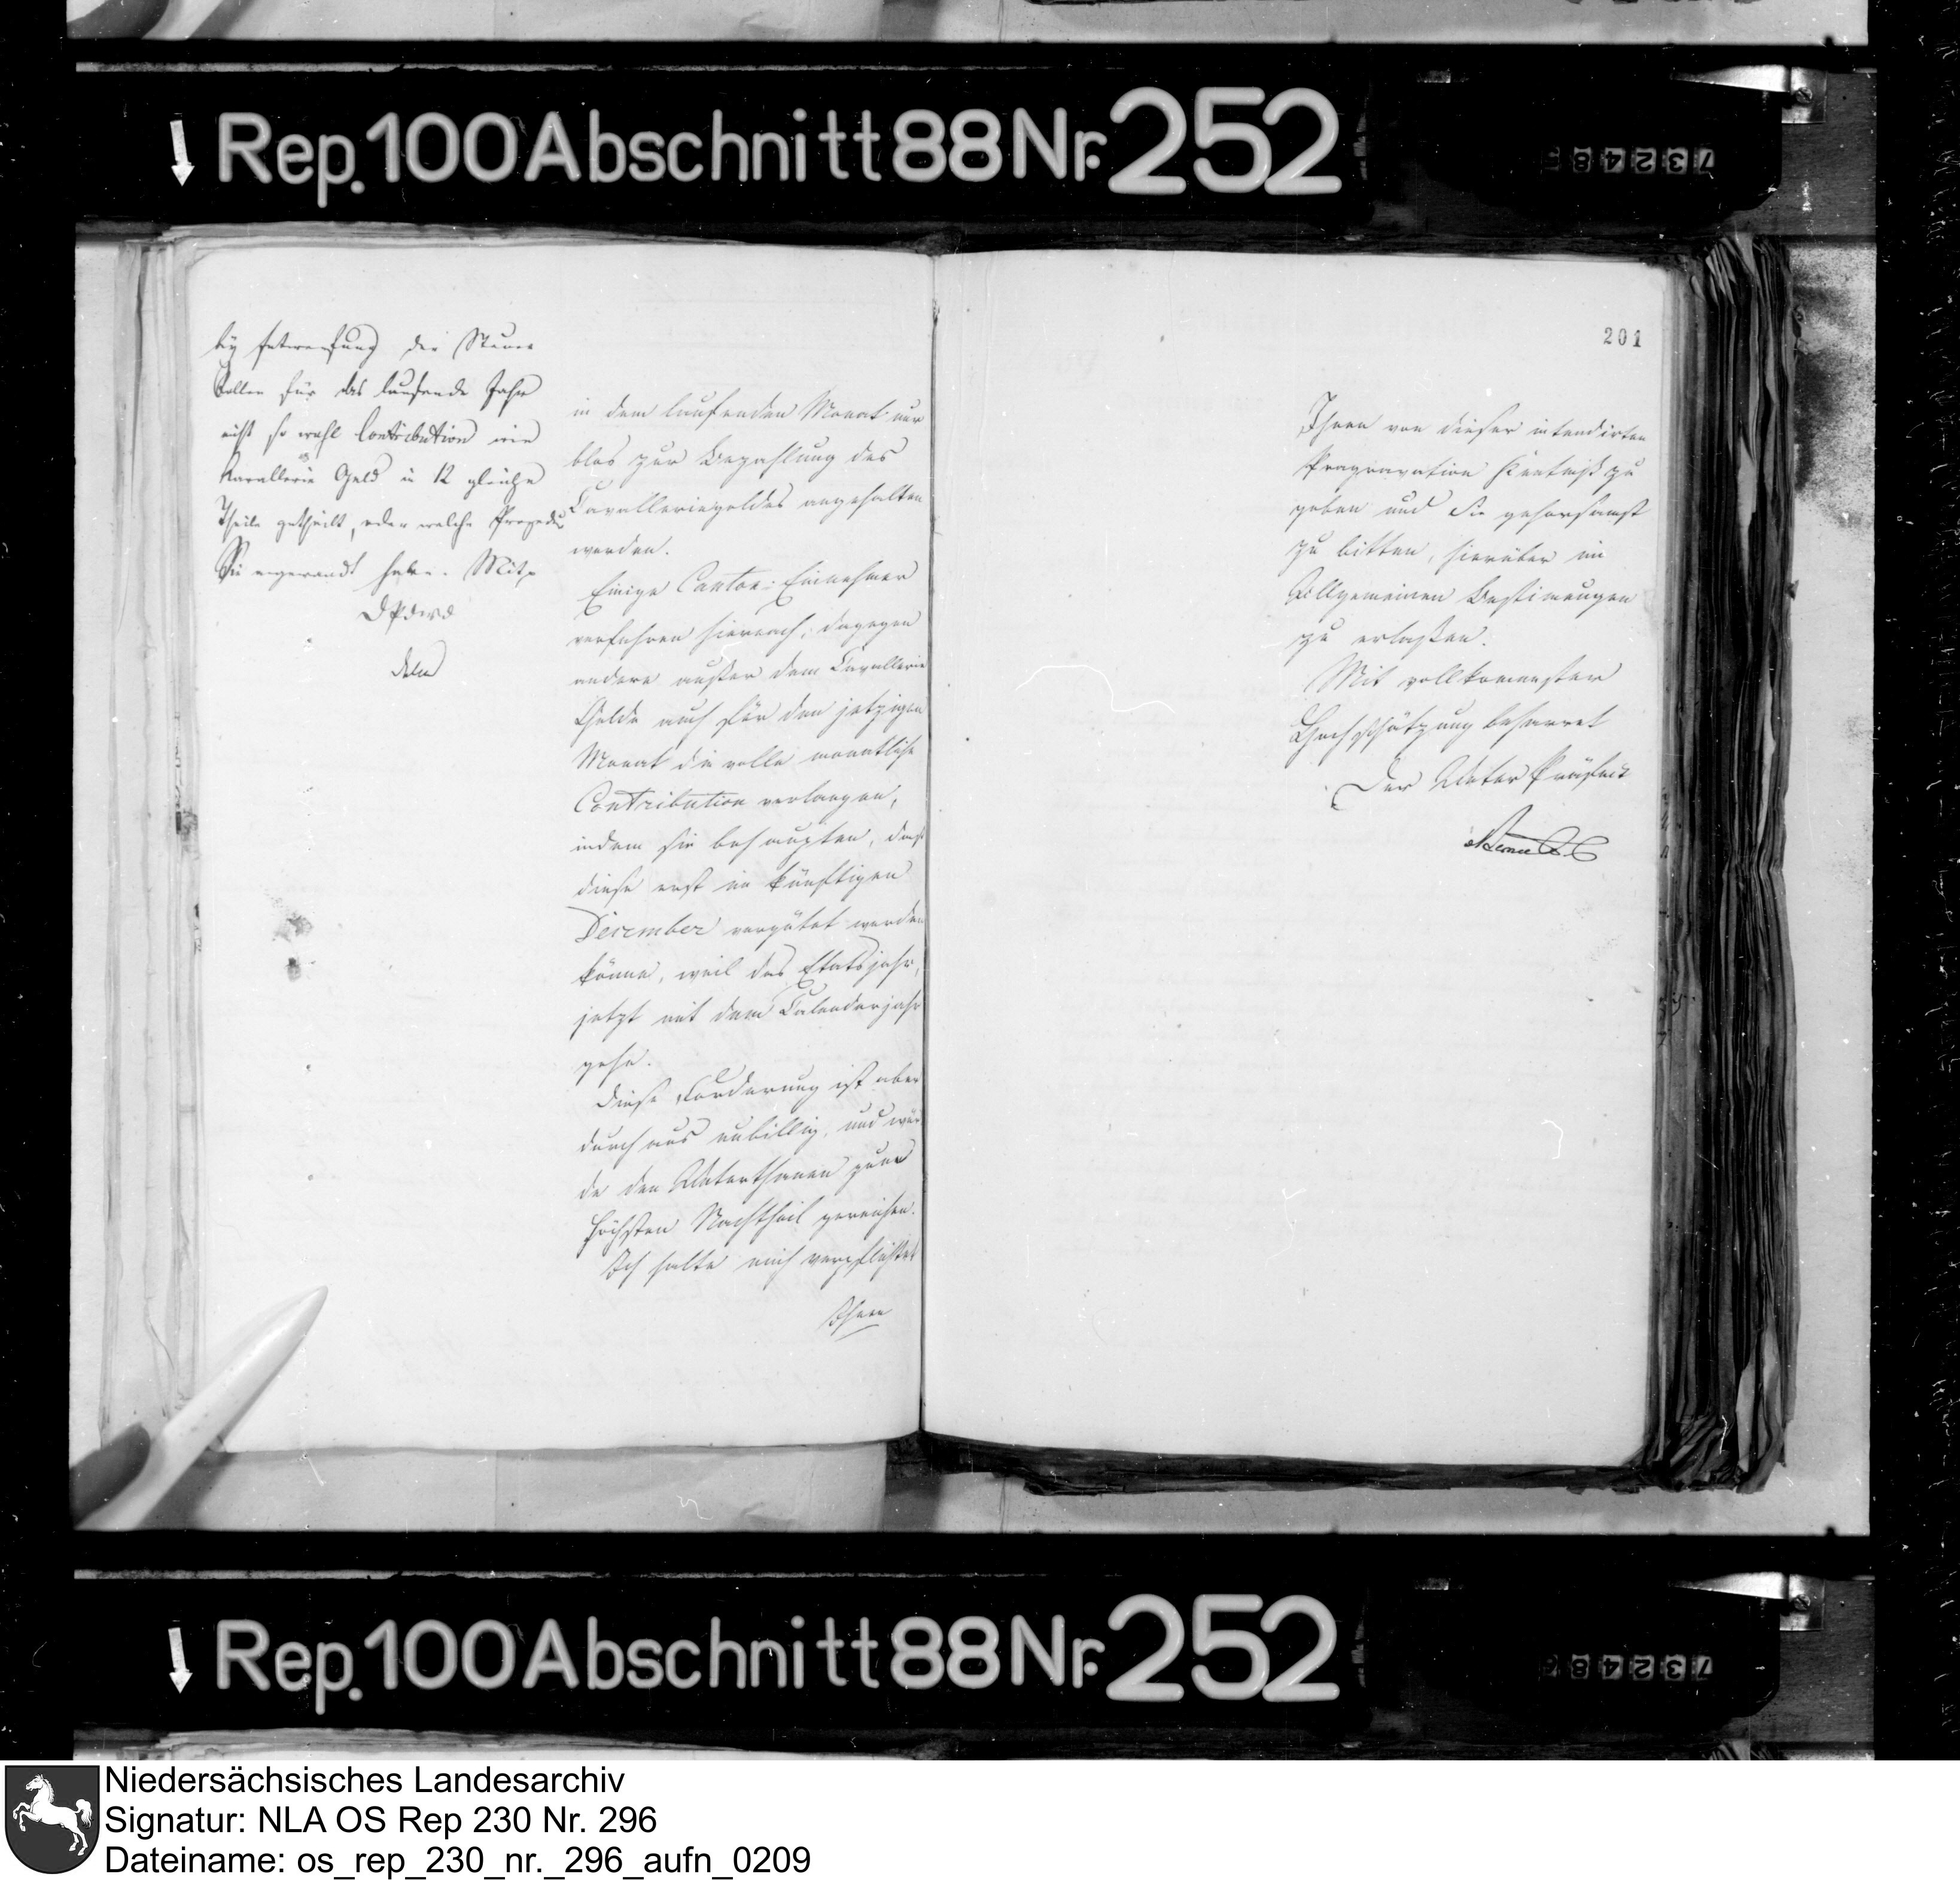 Rep. 100 Abschnitt 88 Nr. 252
73248
bey Entwerfung der Steuer
Rollen für das laufende Jahr
nicht so wohl Contribution wie
Kavallerie Geld in 12 gleiche
Theile getheilt, oder welche
Sie angewandt haben. Mit
in dem laufenden Monat nur
blos zur Bezahlung des
Cavalleriegeldes angehalten
werden.
Einige Canton-Einnehmer
verfahren hiernach; dagegen
andere außer dem Cavallerie
Gelde auch für den jetzigen
Monat die volle monatliche
Contribution verlangen,
indem sie behaupten, daß
diese erst im künftigen
December vergütet werden
könne, weil das Etatsjahr,
jetzt mit dem Calenderjahr
gehe.
Diese Forderung ist aber
durchaus unbillig, und wür
de den Unterthanen zum
höchsten Nachtheil gereichen.
Ich halte mich verpflichtet
Ihnen
201
Ihnen von dieser intendirten
Praegravation Kentniß zu
geben und Sie gehorsamst
zu bitten, hierüber im
Allgemeinen Bestimungen
zu erlaßen.
Mit vollkomenster
Hochschätzung beharret
Der Unter Präfect
Rep. 100 Abschnitt 88 Nr. 252
73248
Niedersächsisches Landesarchiv
Signatur: NLA OS Rep 230 Nr. 296
Dateiname: os_rep_230_nr._296_aufn_0209